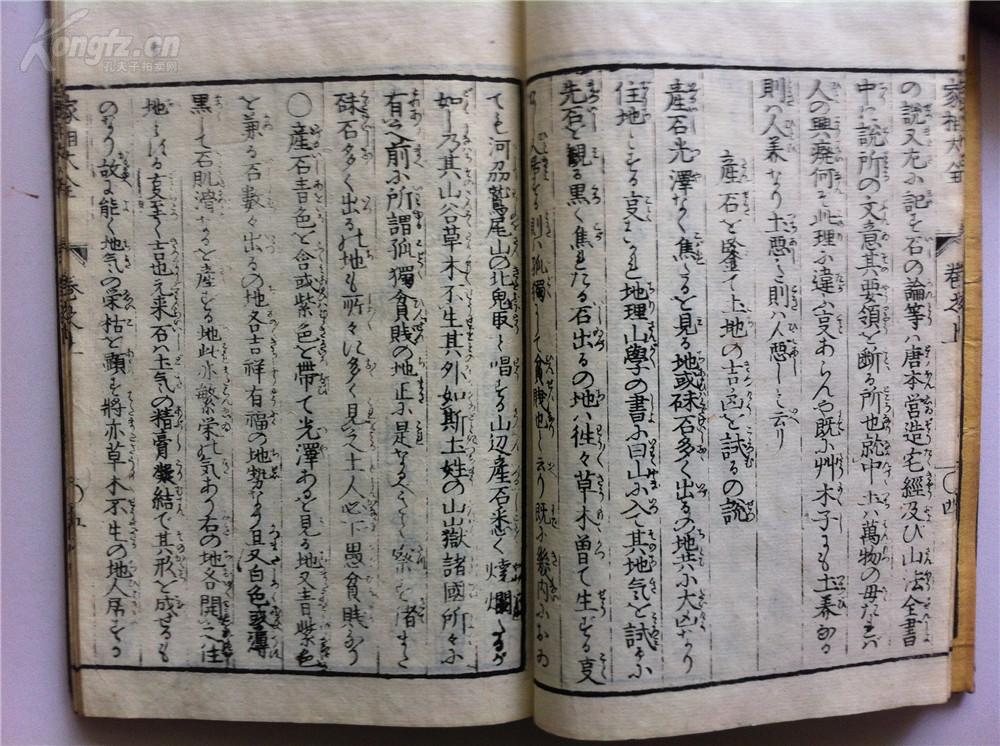 Kongfz.cn
孔夫子拍卖网
家相大全
巻之上
の説又左に記す石の論等ハ唐本営造宅經及び山法全書
中に説所の文意其要領を断る所也就中土ハ萬物の母なれバ
人の興廃何ぞ此理に違ふ叓あらんや既に艸木子にも土養なる
則ハ人養なり土悪き則ハ人悪しと云り
産石を鑒て土地の吉凶を試るの説
産石光澤なく焦たるを見る地或硃石多く出るの地共に大凶なり
住地とする叓なかれ地理山學の書に曰山に入て其地気を試るに
先石を観る黒く焦れたる石出るの地ハ往々草木曽て生ずる叓
人居を則ハ孤獨にして貧賤也と云り既に畿内におゐ
ても河刕鷲尾山の北鬼取と唱ずる山辺産石悉く焼爛するが
如し乃其山谷草木不生其外如斯土姓の山嶽諸國所々に
有之前に所謂孤獨貧賤の地正に是なるべし
硃石多く出るの地も所々に多く見之土人必下愚貧賤なり
〇産石青色を含或紫色を帯て光澤あるを見る地又青紫色
を兼る石数々出るの地各吉祥有福の地勢なり且又白色或薄
黒して石肌滑なるを産ずる地此亦繁栄の気あり右の地各開之住
地とする叓幸く吉也元来石ハ土気の精膏凝結て其形を成せるも
のなり故に能く地気の栄枯を顕す将亦草木不生の地人居する
家相大全
巻之上